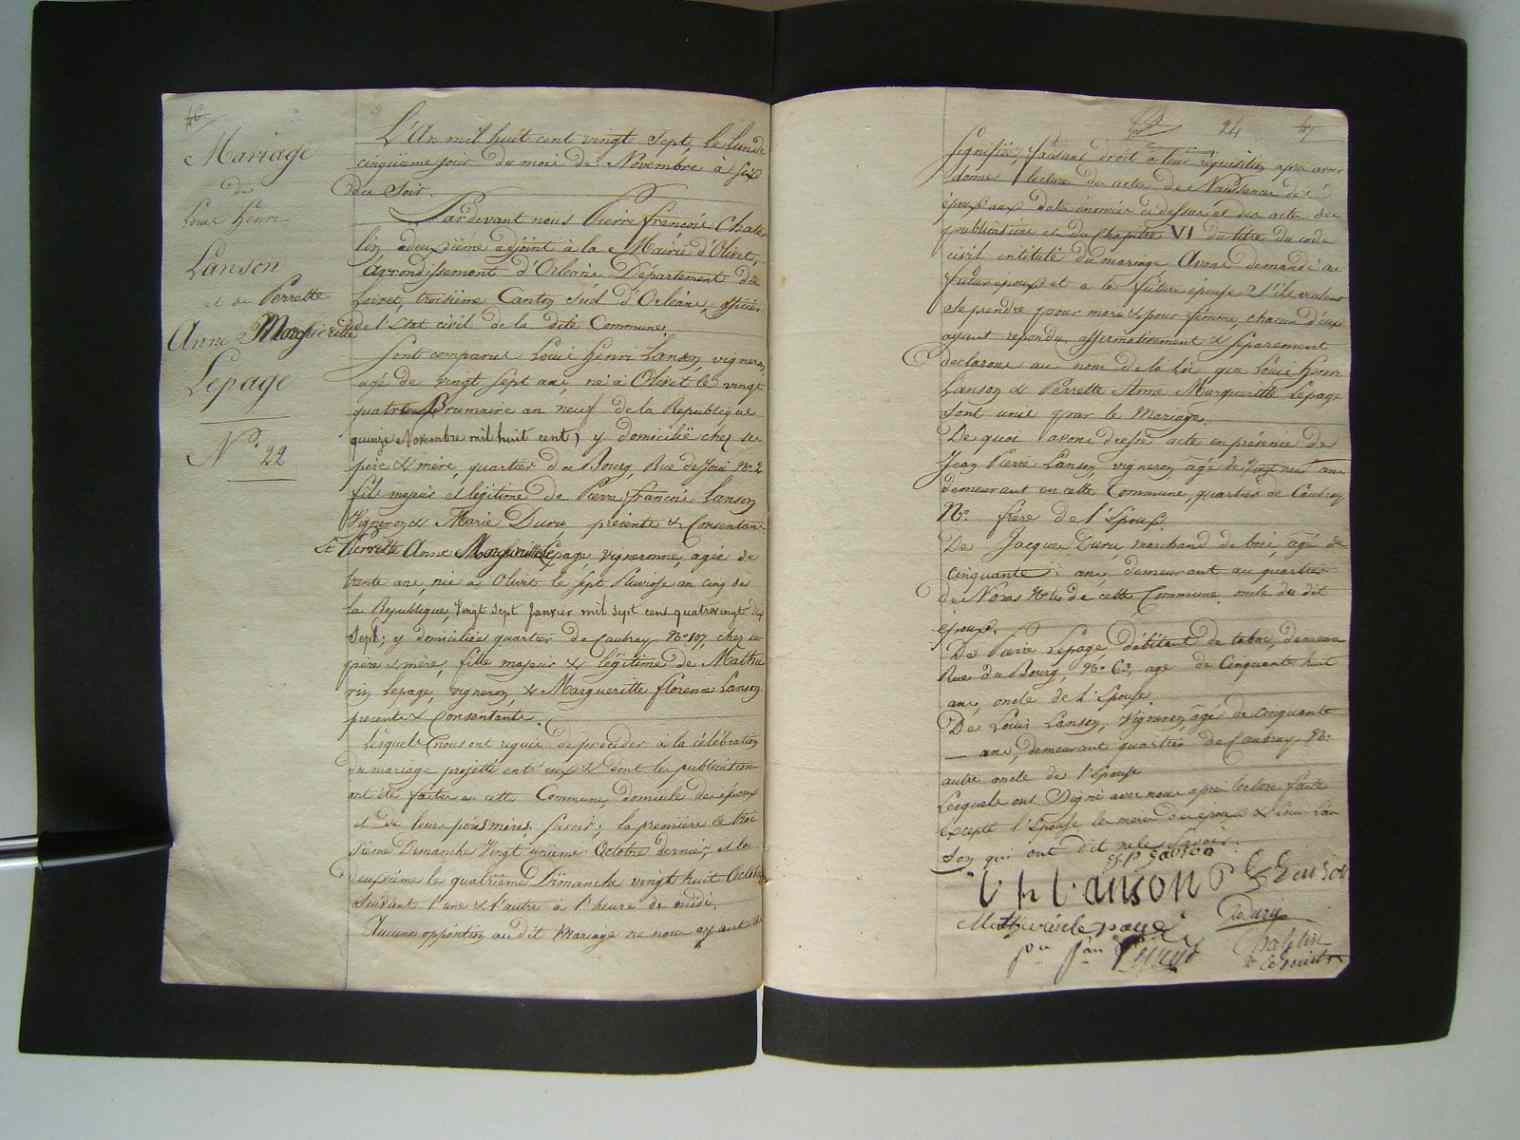 Mariage
de
Louis Henri
Lanson
et de Perrette
Anne Margueritte
Lepage
N° 22
L'An mil huit cent vingt Sept, le Lundi
cinquième jour du mois de Novembre à six
du Soir.
Pardevant nous Pierre François Chate
lin deuxième adjoint à la Mairie d'Olivet,
Arrondissement d'Orléans Département du
Loiret, troisième Canton Sud d'Orléans, officier
de l'Etat civil de la dite Commune,
Sont comparus Louis Henri Lanson, vigneron,
agé de vingt sept ans, né à Olivet le vingt
quatre Brumaire an neuf de la République
quinze Novembre mil huit cent, y domicilié chez ses
père & mère, quartier du Bourg, Rue de N° 2
fils majeur et légitime de Pierre François Lanson
Vigneron & Marie Duru, présents & Consentans
Et Perrette Anne Margueritte Lepage, vigneronne, agée de
trente ans, née à Olivet le sept Pluviose an cinq de
la République, Vingt sept Janvier mil sept cent quatrevingt dix
Sept; y domiciliée quartier de Caubray N° 107, chez ses
père & mère, fille majeure & légitime de Mathu
rin Lepage, vigneron, & Margueritte florence Lanson
présents & Consentants.
Lesquels nous ont requis de procéder à la célébration
du mariage projetté entr'eux & dont les publications
ont été faites en cette Commune, domicile des époux
et de leurs pères mères, savoir; la première le troi
sième Dimanche Vingt unième Octobre dernier, et la
deuxième le quatrième Dimanche vingt huit Octobre
suivant l'une & l'autre à l'heure de midi,
Aucune opposition au dit Mariage ne nous ayant été
24
signifiée, faisant droit à leur réquisition après avoir
donné lecture des actes de Naissance des
époux aux dates énoncées ci dessus et des actes de
publications et du chapitre VI du titre du code
civil intitulé du mariage Avons demandé au
futur époux et à la future épouse s'ils veulent
se prendre pour mari & pour femme, chacun d'eux
ayant répondu affirmativement & séparément
declarons au nom de la loi que Louis Henri
Lanson & Perrette Anne Margueritte Lepage
sont unis par le Mariage.
De quoi avons dressé acte en présence de
Jean Pierre Lanson, vigneron, agé de vingt neuf ans
demeurant en cette Commune, quartier de Caubray
N° frère de l'Epoux.
De Jacques Duru, marchand de bois, agé de
Cinquante ans, demeurant au quartier
de cette Commune oncle du dit
époux.
De Pierre Lepage débitant de tabac, demeurant
Rue du Bourg, N° 63, agé de Cinquante huit
ans, oncle de L'Epouse.
De Louis Lanson, Vigneron, agé de Cinquante
ans, demeurant quartier de Caubray N°
autre oncle de l'épouse
Lesquels ont signé avec nous après lecture faite
excepté l'Epouse les mères des époux & Louis Lan
son qui ont dit ne le Savoir.
J P Lanson
L h Lanson P f Lanson
Mathurin lepage Duru
Chatelin